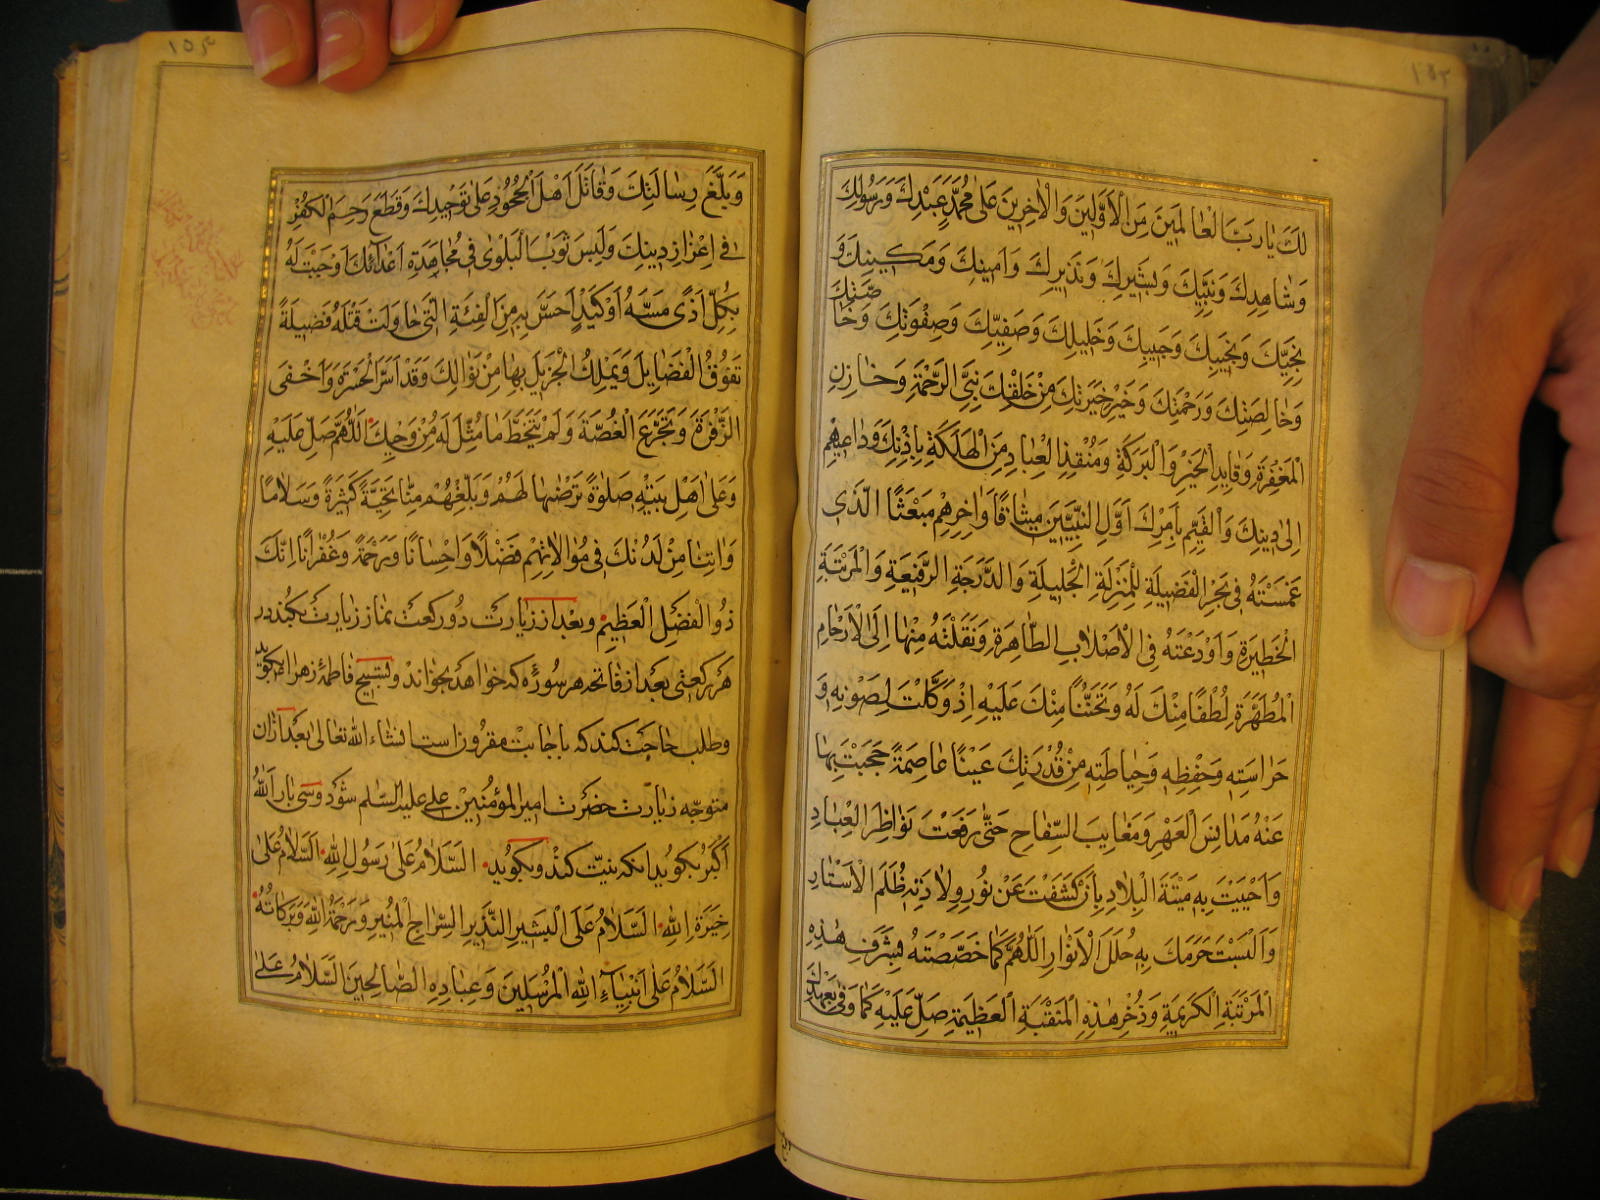 ١٥٢
لَكَ يا رَبَّ الْعالَمينَ مِنَ الْاَوَّلينَ وَالْاٰخِرينَ عَلىٰ مُحَمَّدٍ عَبْدِكَ وَرَسُولِكَ
وَشاهِدِكَ وَنَبِيِّكَ وَبَشيرِكَ وَنَذيرِكَ وَاَمينِكَ وَمَكينِكَ وَ
نَجِيِّكَ وَنَجيبِكَ وَحَبيبِكَ وَخَليلِكَ وَصَفِيِّكَ وَصِفْوَتِكَ وَخاصَّتِكَ
وَخالِصَتِكَ وَرَحْمَتِكَ وَخَيْرِ خِيَرَتِكَ مِنْ خَلْقِكَ نَبِيِّ الرَّحْمَةِ وَخازِنِ
الْمَغْفِرَةِ وَقايِدِ الْخَيْرِ وَالْبَرَكَةِ وَمُنْقِذِ الْعِبادِ مِنَ الْهَلَكَةِ بِاِذْنِكَ وَداعيهِمْ
اِلىٰ دينِكَ وَالْقَيِّمِ بِاَمْرِكَ اَوَّلِ النَّبِيّينَ ميثاقًا وَاٰخِرِهِمْ مَبْعَثًا الَّذي
غَمَسْتَهُ فى بَحْرِ الْفَضيلَةِ لِلْمَنْزِلَةِ الْجَليلَةِ وَالدَّرَجَةِ الرَّفيعَةِ وَالْمَرْتَبَةِ
الْخَطيرَةِ وَاَوْدَعْتَهُ فِى الْاَصْلابِ الطّاهِرَةِ وَنَقَلْتَهُ مِنْها اِلَى الْاَرْحامِ
الْمُطَهَّرَةِ لُطْفًا مِنْكَ لَهُ وَتَحَنُّنًا مِنْكَ عَلَيْهِ اِذْ وَكَّلْتَ لِصَوْنِهِ وَ
حَراسَتِهِ وَحِفْظِهِ وَحِياطَتِهِ مِنْ قُدْرَتِكَ عَيْنًا عاصِمَةً حَجَبْتَ بِها
عَنْهُ مَدانِسَ الْعَهْرِ وَمَعايِبَ السِّفاحِ حَتّىٰ رَفَعْتَ نَواظِرَ الْعِبادِ
وَاَحْيَيْتَ بِهِ مَيْتَةَ الْبِلادِ بِاَنْ كَشَفْتَ عَنْ نُورِ وِلادَتِهِ ظُلَمَ الْاَسْتارِ
وَاَلْبَسْتَ حَرَمَكَ بِهِ حُلَلَ الْاَنْوارِ اَللّٰهُمَّ كَما خَصَصْتَهُ بِشَرَفِ هٰذِهِ
الْمَرْتَبَةِ الْكَريمَةِ وَذُخْرِ هٰذِهِ الْمَنْقَبَةِ الْعَظيمَةِ صَلِّ عَلَيْهِ كَما وَفىٰ بِعَهْدِكَ
١٥٣
وَبَلَّغَ رِسالَتِكَ وَقاتَلَ اَهْلَ الْجُحُودِ عَلىٰ تَوْحيدِكَ وَقَطَعَ رَحِمَ الْكُفْرِ
فى اِعْزازِ دينِكَ وَلَبِسَ ثَوْبَ الْبَلْوىٰ فى مُجاهَدَةِ اَعْدائِكَ اَوْجَبْتَ لَهُ
بِكُلِّ اَذًى مَسَّهُ اَوْ كَيْدٍ اَحَسَّ بِهِ مِنَ الْفِئَةِ الَّتى حاوَلَتْ قَتْلَهُ فَضيلَةً
تَفُوقُ الْفَضايِلَ وَيَمْلِكُ الْجَزيلَ بِها مِنْ نَوالِكَ وَقَدْ اَسَرَّ الْحَسْرَةَ وَاَخْفىٰ
الزَّفْرَةَ وَتَجَرَّعَ الْغُصَّةَ وَلَمْ يَتَخَطَّ ما مُثِّلَ لَهُ مِنْ وَحْيِكَ اَللّٰهُمَّ صَلِّ عَلَيْهِ
وَعَلىٰ اَهْلِ بَيْتِهِ صَلوٰةً تَرْضٰيها لَهُمْ وَبَلِّغْهُمْ مِنّا تَحِيَّةً كَثيرَةً وَسَلامًا
وَاٰتِنا مِنْ لَدُنْكَ فى مُوالاتِهِمْ فَضْلاً وَاِحْسانًا وَرَحْمَةً وَغُفْرانًا اِنَّكَ
ذُو الْفَضْلِ الْعَظيمِ وبعد از زيارت دو ركعت نماز زيارت بكند در
هر ركعتى بعد از فاتحه هر سوره كه خواهد بخواند و تسبيح فاطمهٔ زهرا بگويد
و طلب حاجت كند كه باجابت مقرونست انشاء الله تعالى بعد از آن
متوجّه زيارت حضرت امير المؤمنين على عليه السّلم شود و سى بار اَللهُ
اَكْبَرُ بگويد انكه نيّت كند و بگويد اَلسَّلامُ عَلىٰ رَسُولِ اللهِ اَلسَّلامُ عَلىٰ
خِيَرَةِ اللهِ اَلسَّلامُ عَلَى الْبَشيرِ النَّذيرِ السِّراجِ الْمُنيرِ وَرَحْمَةُ اللهِ وَبَرَكاتُهُ
اَلسَّلامُ عَلىٰ اَنْبِياءِ اللهِ الْمُرْسَلينَ وَعِبادِهِ الصّالِحينَ اَلسَّلامُ عَلىٰ